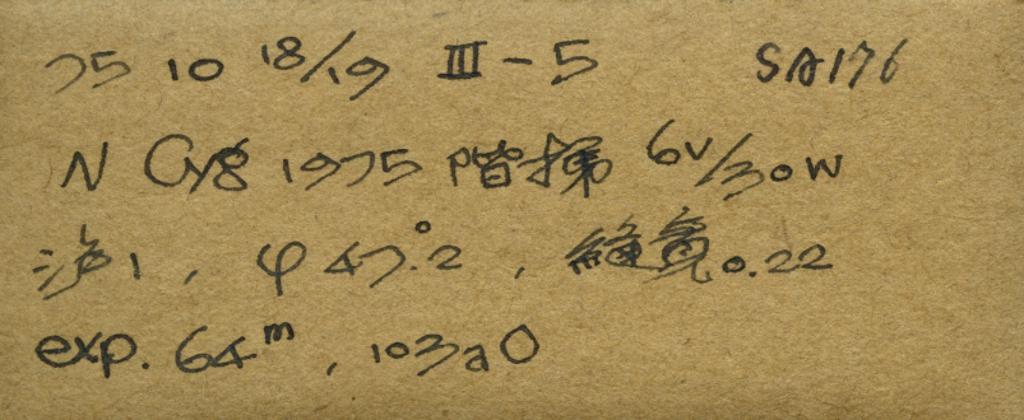 75 10 18/19 III-5 SA176
N Cyg 1975 階梯 6V/30W
滤1, φ 47°.2, 缝宽0.22
exp. 64m, 103aO